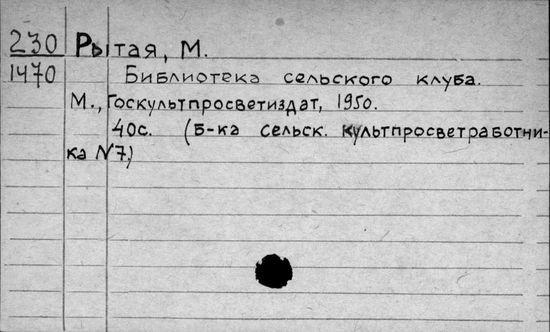 230 Рытая, М.
1470 Библиотека сельского клуба.
М., Госкультпросветиздат, 1950.
40с. (Б-ка сельск. культпросветработни-
ка №7.)